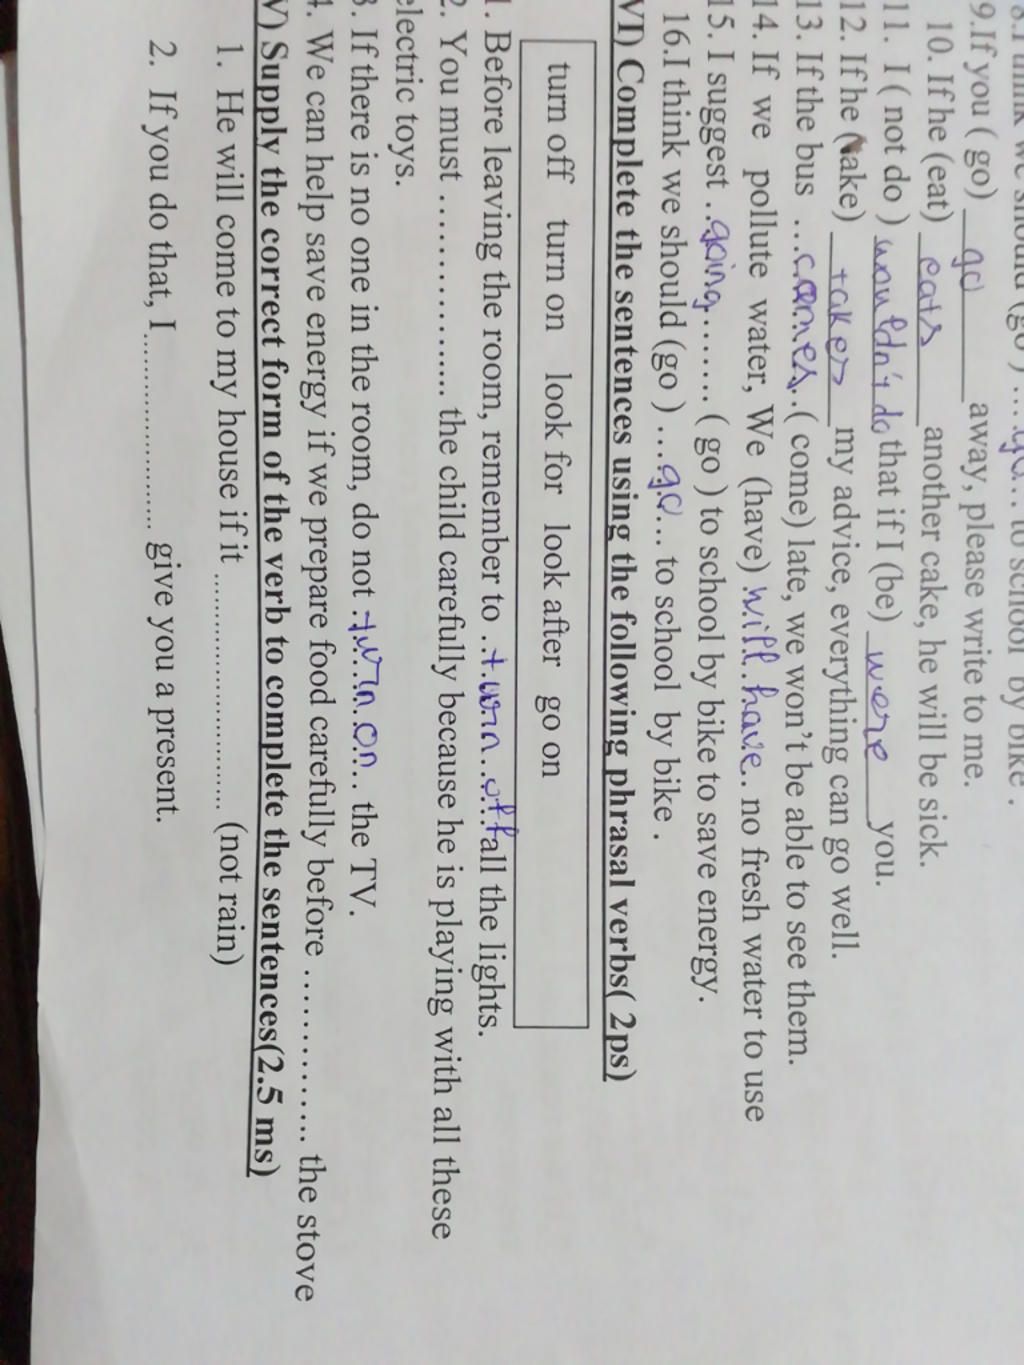 8.I think we should (go ) ....go... to school by bike .
9.If you ( go) go away, please write to me.
10. If he (eat) eats another cake, he will be sick.
11. I ( not do ) wouldn't do that if I (be) were you.
12. If he (take) takes my advice, everything can go well.
13. If the bus ...comes..( come) late, we won't be able to see them.
14. If we pollute water, We (have) will have.. no fresh water to use
15. I suggest ..going....... ( go ) to school by bike to save energy.
16.I think we should (go ) ....go... to school by bike .
VI) Complete the sentences using the following phrasal verbs( 2ps)
turn off turn on look for look after go on
1. Before leaving the room, remember to ..turn off all the lights.
2. You must .................. the child carefully because he is playing with all these
electric toys.
3. If there is no one in the room, do not .turn on.. the TV.
4. We can help save energy if we prepare food carefully before ................ the stove
V) Supply the correct form of the verb to complete the sentences(2.5 ms)
1. He will come to my house if it .............................. (not rain)
2. If you do that, I ......................... give you a present.